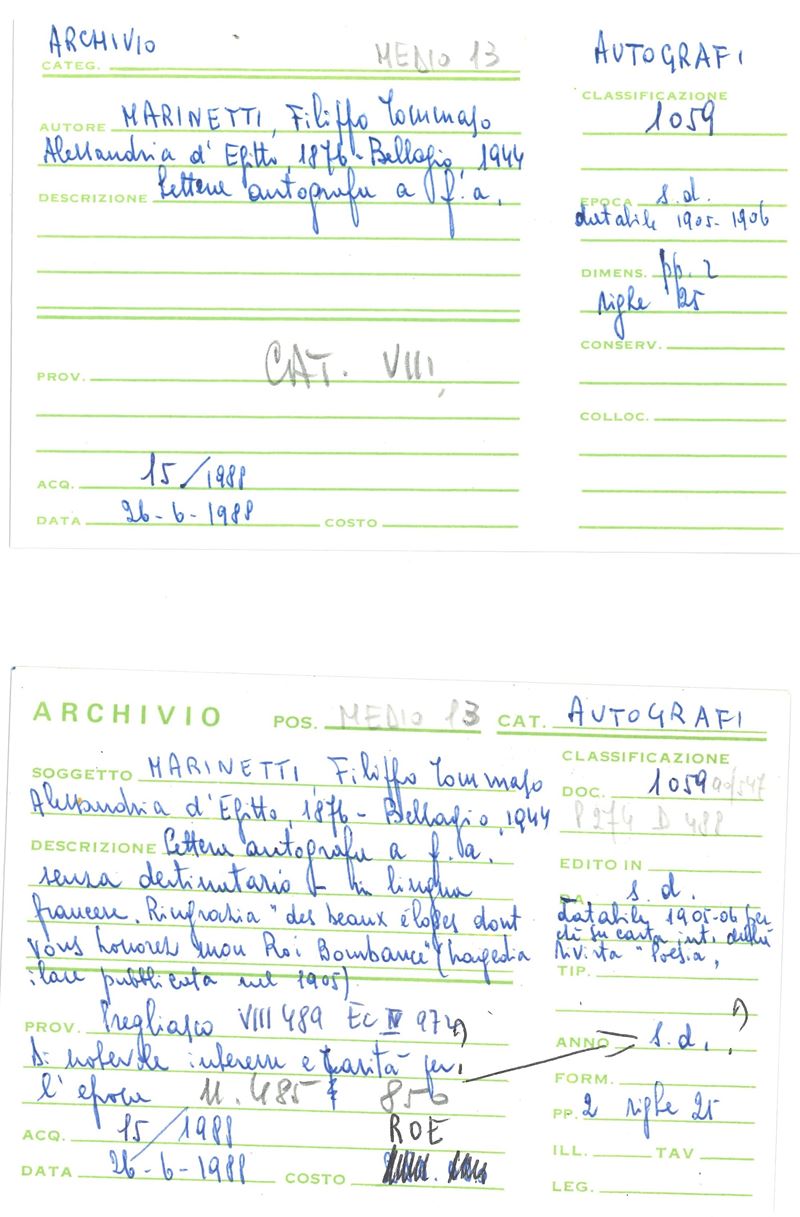 ARCHIVIO
CATEG. MEDIO 13
AUTORE MARINETTI, Filippo Tommaso
Alessandria d'Egitto, 1876 - Bellagio, 1944
DESCRIZIONE Lettera autografa a f.a.
PROV. CAT. VIII,
ACQ. 15/1988
DATA 26-6-1988 COSTO
AUTOGRAFI
CLASSIFICAZIONE
1059
EPOCA s.d.
databile 1905-1906
DIMENS. pp. 2
righe 25
CONSERV.
COLLOC.
ARCHIVIO POS. MEDIO 13 CAT. AUTOGRAFI
SOGGETTO MARINETTI, Filippo Tommaso
Alessandria d'Egitto, 1876 - Bellagio, 1944
DESCRIZIONE Lettera autografa a f.a.
senza destinatario - in lingua
francese. Ringrazia "des beaux éloges dont
vous honorez mon Roi Bombance" (tragedia
ilare pubblicata nel 1905)
PROV. Pregliasco VIII 489 Ec IV 974
Di notevole interesse e rarità per
l'epoca n. 485 856
ACQ. 15/1988 ROE
DATA 26-6-1988 COSTO
CLASSIFICAZIONE
DOC. 1059 90/547
P 274 D 488
EDITO IN
DA s.d.
Databile 1905-06 per
ché su carta int. della
rivista "Poesia",
TIP.
ANNO s.d.
FORM.
PP. 2 righe 25
ILL. TAV
LEG.